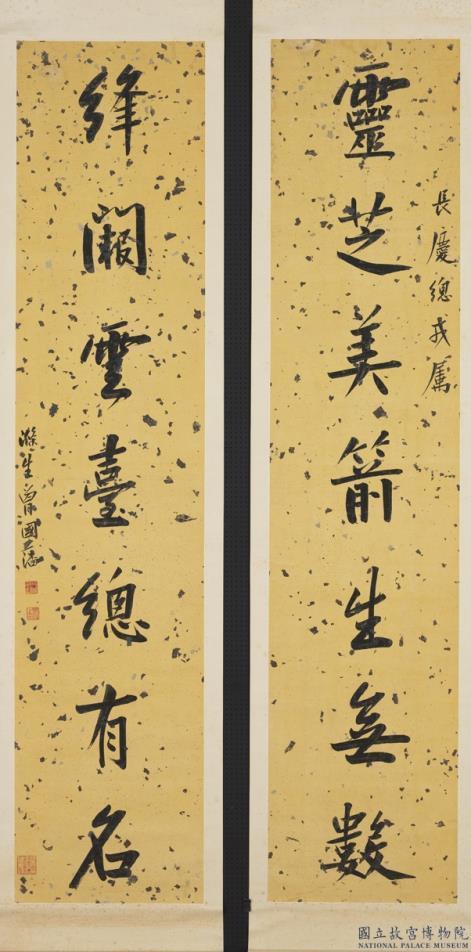 長慶總戎属
靈芝美箭生無數
絳闕雲臺總有名
滌生曾國藩
國立故宮博物院
NATIONAL PALACE MUSEUM